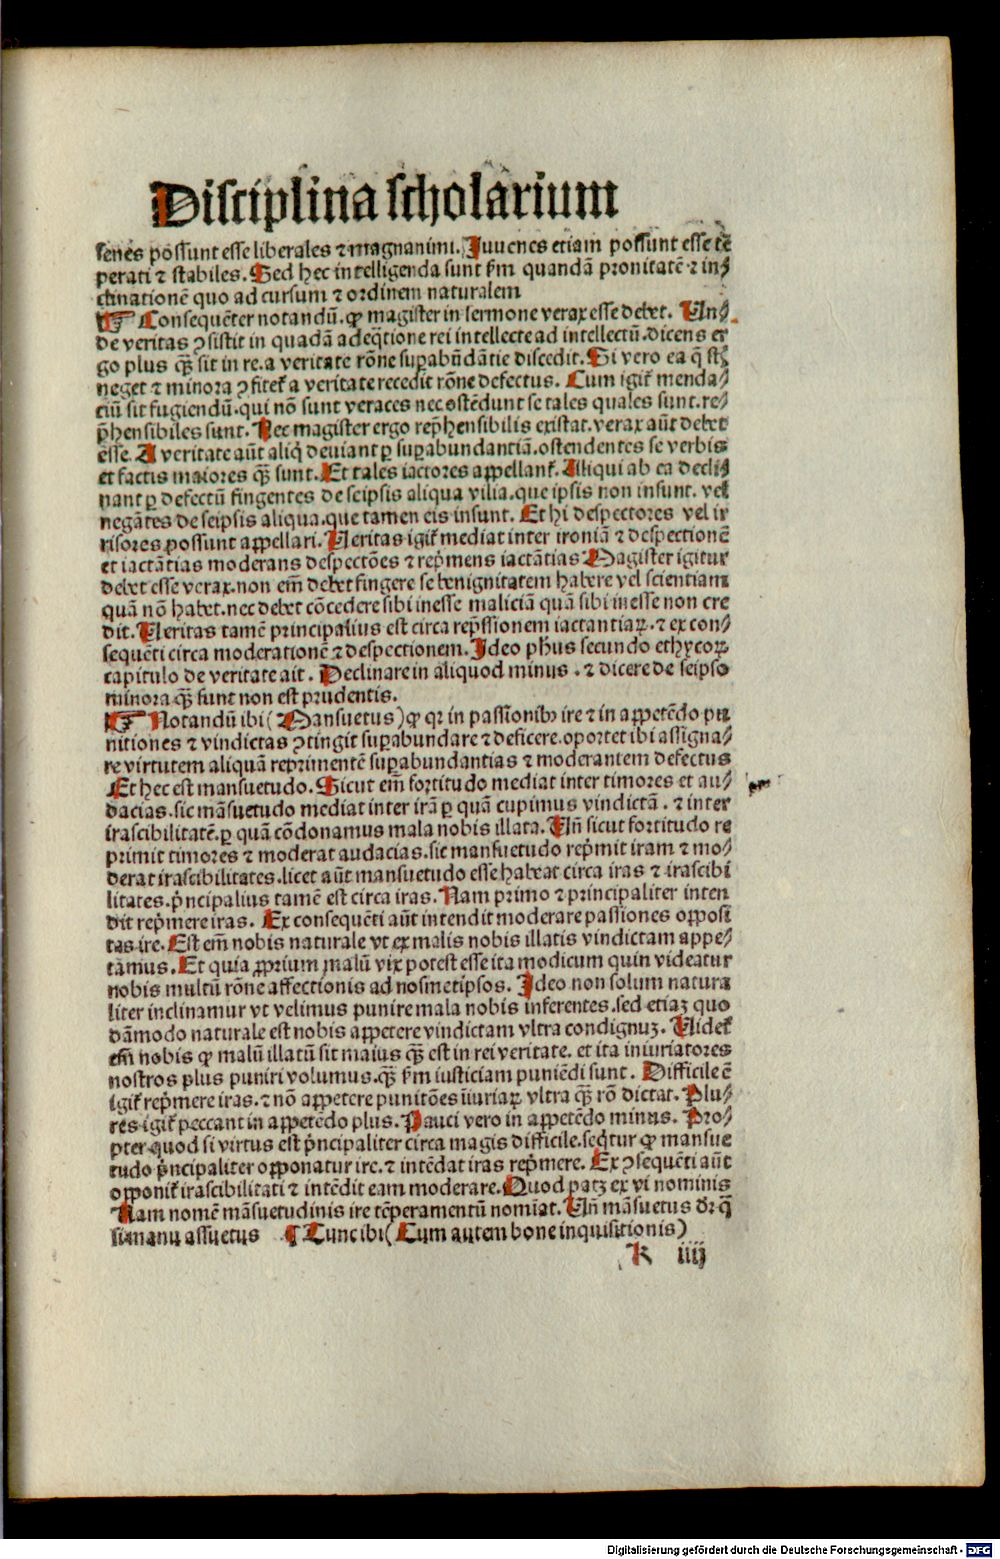 Disciplina scholarium
senes possunt esse liberales ⁊ magnanimi. Juvenes etiam possunt esse tē
perati ⁊ stabiles. Sed hec intelligenda sunt fm quandā pronitatē ⁊ in⸗
clinationē quo ad cursum ⁊ ordinem naturalem
☞ Consequēter notandū. ꝙ magister in sermone verax esse debet. Un⸗
de veritas ꝯsistit in quadā adeq̄tione rei intellecte ad intellectū. dicens er
go plus qȝ̄ sit in re. a veritate rōne suꝑabūdātie discedit. Si vero ea q̄ st̄
neget ⁊ minora ꝯfitet᷑ a veritate recedit rōne defectus. Cum igit᷑ menda⸗
ciū sit fugiendū. qui nō sunt veraces nec ostēdunt se tales quales sunt. re⸗
p̄hensibiles sunt. Nec magister ergo rep̄hensibilis existat. verax aūt debet
esse. A veritate aūt aliq̄ deviant ꝑ suꝑabundantiā. ostendentes se verbis
et factis maiores qȝ̄ sunt. Et tales iactores appellant᷑. Aliqui ab ea decli⸗
nant ꝑ defectū fingentes de seipsis aliqua vilia. que ipsis non insunt. vel
negātes de seipsis aliqua. que tamen eis insunt. Et hi despectores vel ir
risores possunt appellari. Veritas igit᷑ mediat inter ironiā ⁊ despectionē
et iactātias moderans despectōes ⁊ rep̄mens iactātias Magister igitur
debet esse verax. non em̄ debet fingere se benignitatem habere vel scientiam
quā nō habet. nec debet cōcedere sibi inesse maliciā quā sibi inesse non cre
dit. Veritas tamē principalius est circa rep̄ssionem iactantiaꝝ. ⁊ ex con⸗
sequēti circa moderationē ⁊ despectionem. Ideo ph̄us secundo ethycoꝝ
capitulo de veritate ait. Declinare in aliquod minus. ⁊ dicere de seipso
minora qȝ̄ sunt non est prudentis.
☞ Notandū ibi (Mansuetus) ꝙ qꝛ in passionibꝰ ire ⁊ in appetēdo pu
nitiones ⁊ vindictas ꝯtingit suꝑabundare ⁊ deficere. oportet ibi assigna⸗
re virtutem aliquā reprimentē suꝑabundantias ⁊ moderantem defectus
Et hec est mansuetudo. Sicut em̄ fortitudo mediat inter timores et au⸗
dacias. sic māsuetudo mediat inter irā ꝑ quā cupimus vindictā. ⁊ inter
irascibilitatē. ꝑ quā cōdonamus mala nobis illata. Un̄ sicut fortitudo re
primit timores ⁊ moderat audacias. sic mansuetudo rep̄mit iram ⁊ mo⸗
derat irascibilitates. licet aūt mansuetudo esse habeat circa iras ⁊ irascibi
litates. p̄ncipalius tamē est circa iras. Nam primo ⁊ principaliter inten
dit rep̄mere iras. Ex consequēti aūt intendit moderare passiones opposi
tas ire. Est em̄ nobis naturale vt ex malis nobis illatis vindictam appe⸗
tamus. Et quia ꝓprium malū vix potest esse ita modicum quin videatur
nobis multū rōne affectionis ad nosmetipsos. Ideo non solum natura
liter inclinamur vt velimus punire mala nobis inferentes. sed etiaȝ quo
dāmodo naturale est nobis appetere vindictam vltra condignuȝ. Videt᷑
em̄ nobis ꝙ malū illatū sit maius qȝ̄ est in rei veritate. et ita iniuriatores
nostros plus puniri volumus. qȝ̄ fm iusticiam puniēdi sunt. Difficile ē
igit᷑ rep̄mere iras. ⁊ nō appetere punitōes iniuriaꝝ vltra qȝ̄ rō dictat. Plu⸗
res igit᷑ peccant in appetēdo plus. Pauci vero in appetēdo minus. Pro⸗
pter quod si virtus est p̄ncipaliter circa magis difficile. seq̄tur ꝙ mansue
tudo p̄ncipaliter opponatur ire. ⁊ intēdat iras rep̄mere. Ex ꝯsequēti aūt
opponit᷑ irascibilitati ⁊ intēdit eam moderare. Quod patȝ ex vi nominis
Nam nomē māsuetudinis ire tēperamentū nomīat. Un̄ māsuetus dꝛ q̄
si manu assuetus ¶ Tunc ibi (Cum autem bone inquisitionis)
K iiij
Digitalisierung gefördert durch die Deutsche Forschungsgemeinschaft - DFG